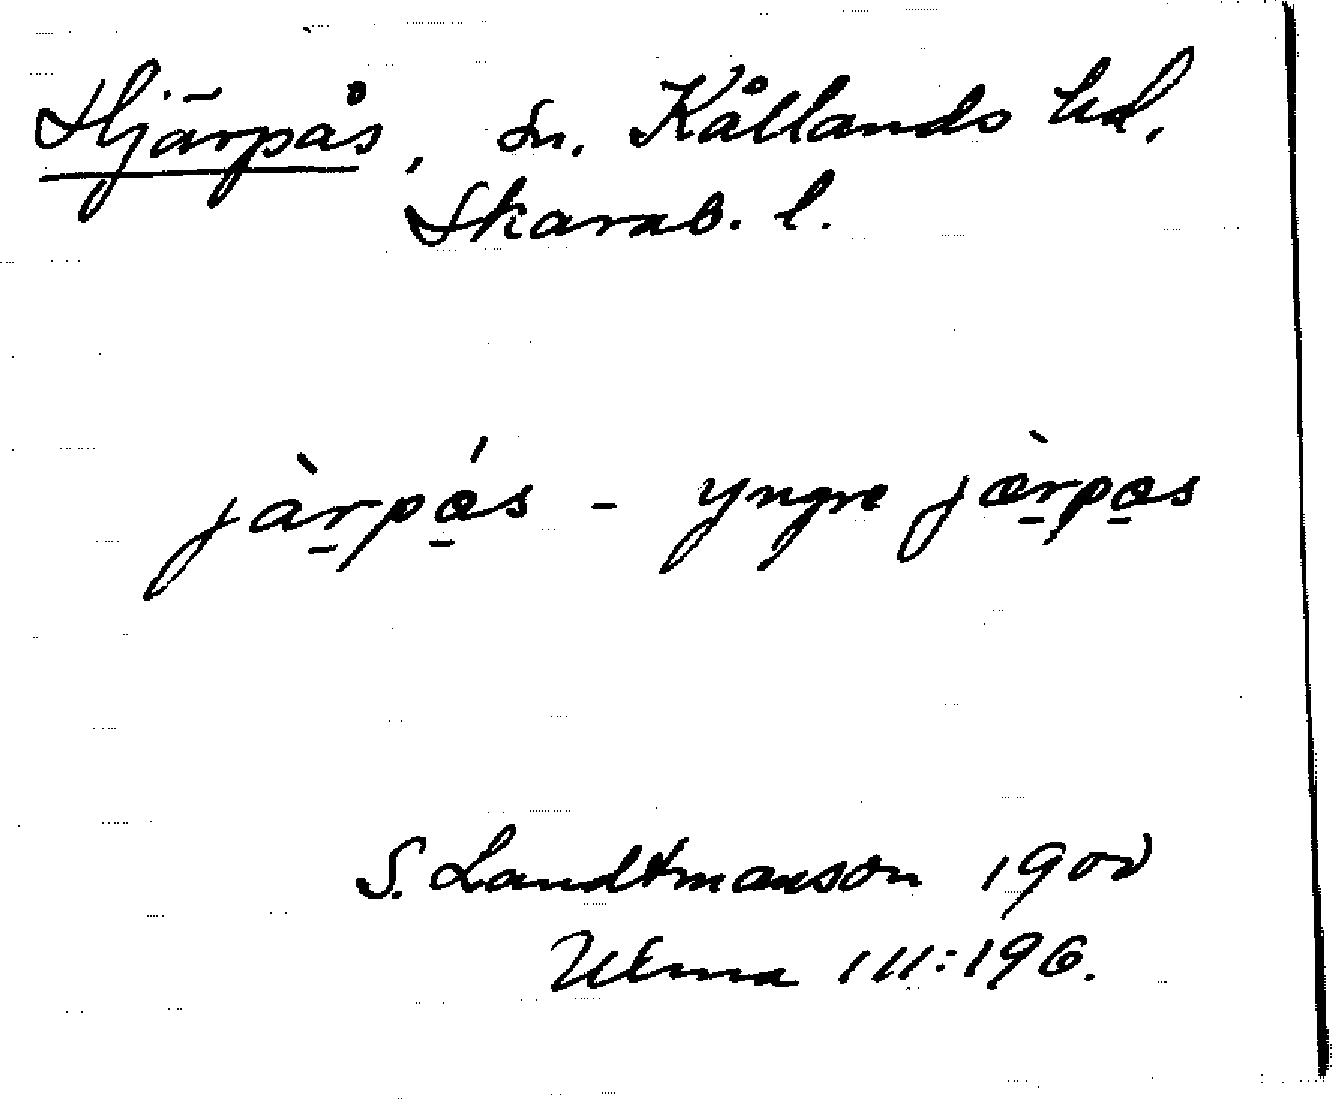 Hjärpås, sn. Kållands hd,
Skarab. l.
jàr̠pá̠s - yngre jæ̀r̠pa̠s
S. Landtmanson 1900
Ulma 111:196.